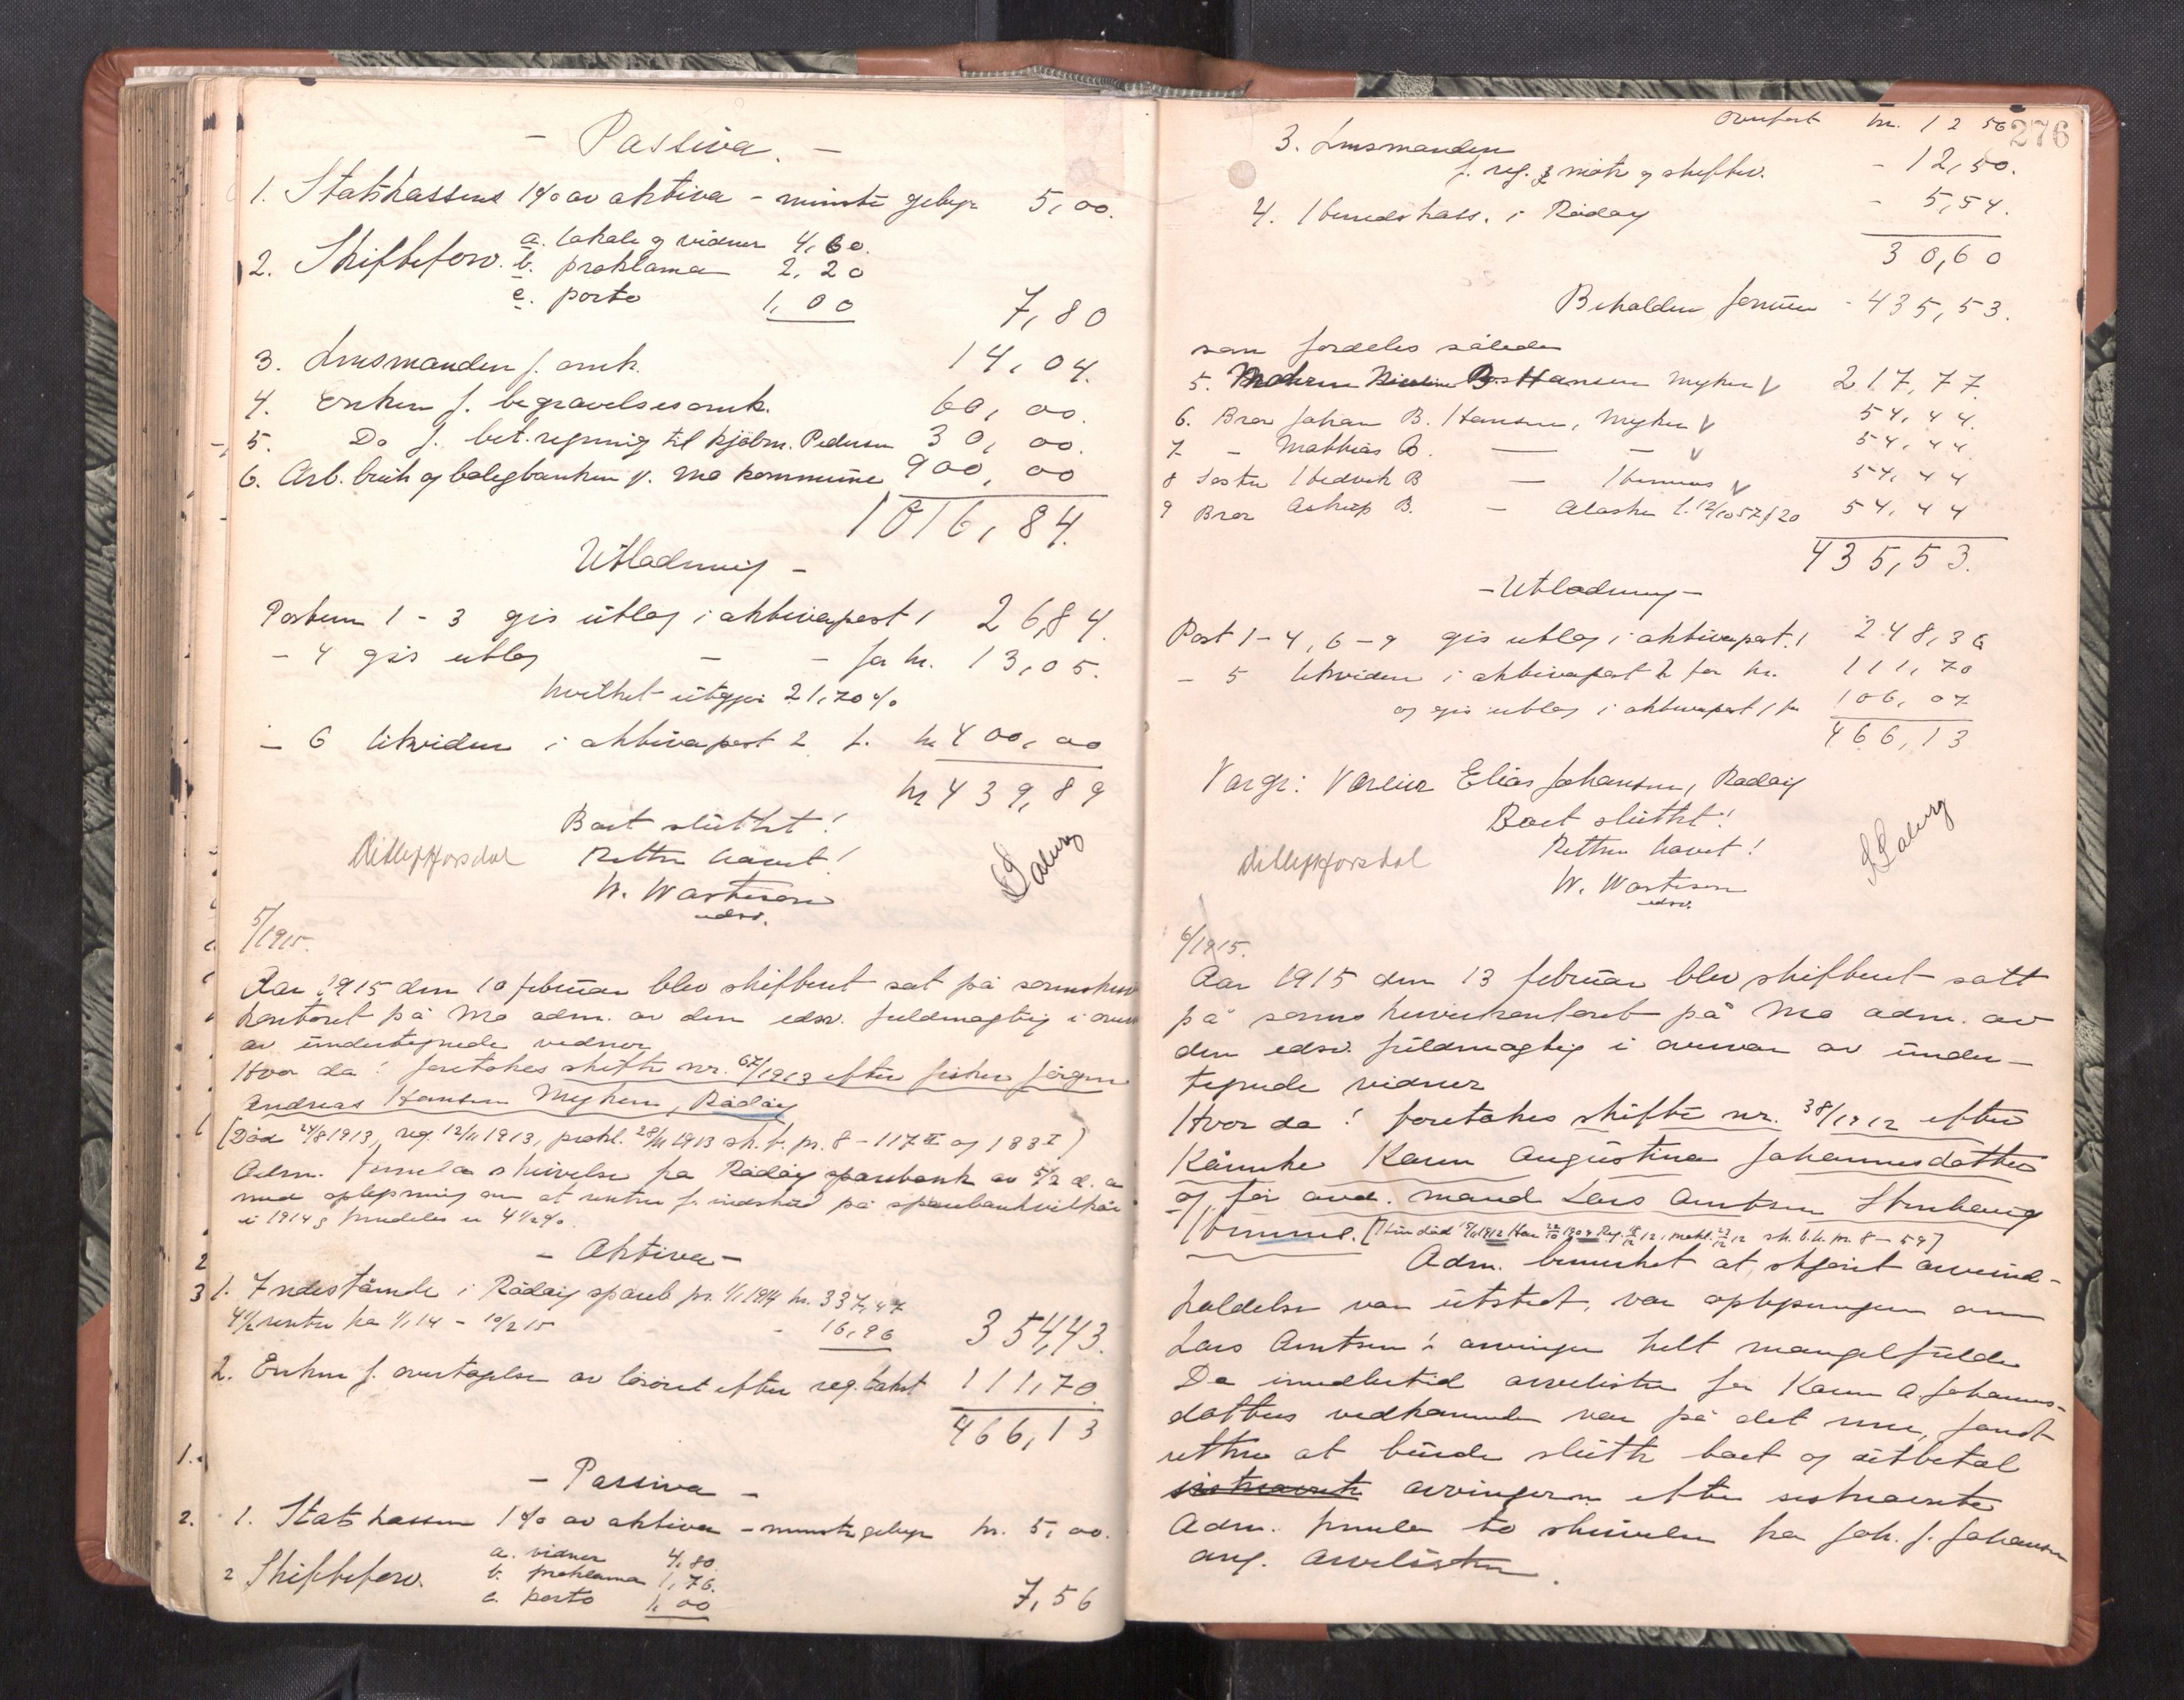 - Passiva. -
1. Statskassens 1% av aktiva - minste gebyr 5,00.
2. Skifteforv. a. lokale og vidner 4,60.
b. proklama 2,20
c. porto 1,00 7,80
3. Lensmanden f. omk. 14,04.
4. Enken f. begravelsesomk. 60,00.
5. Do f. bet. regning til kjøbm. Pedersen 30,00.
6. Arb. bruk og boligbanken v. Mo kommune 900,00
1016,84.
Utlodning -
Posten 1 - 3 gis utlæg i aktivapost 1 26,84.
- 4 gis utlæg - - for kr. 13,05.
hvilket utgjør 21,70%
- 6 likvideres i aktivapost 2 f. kr 400,00
kr 439,89
Boet sluttet!
Retten hævet!
W. Wartison
edsv.
5/1915.
Aar 1915 den 10 februar blev skifteret sat på sorenskriver
kontoret på Mo adm. av den edsv. fuldmægtig i overv
av undertegnede vidner
Hvor da! foretokes skifte nr. 67/1913 efter fisker Jørgen
Andreas Hansen Myken, Rødøy
(Død 24/8 1913, reg. 12/11 1913, prokl. 28/11 1913 sk. b. pr. 8 - 117 II og 133 I)
Adm. fremla skrivelse fra Rødøy sparebank av 5/2 d. a
med oplysning om at renten f. indskud på sparebankvilkår
i 1914 fremdeles er 4½%.
- Aktiva -
1. Indestående i Rødøy spareb pr. 1/1 1914 kr. 337,47
4½ renter fra 1/1 14 - 10/2 15 - 16,96 354,43.
2. Enken f. overtagelse av løsøret efter reg. takst 111,70
466,13
- Passiva -
1. Statskassen 1% av aktiva - minste gebyr kr. 5,00.
2 Skifteforv. a. vidner 4,80
b. proklama 1,76.
c. porto 1,00 7,56
276
Overført kr. 12 56
3. Lensmanden
f. reg. møte og skiftev. - 12,50.
4. Herredskass. i Rødøy - 5,54.
30,60
Beholden formue - 435,53.
som fordeles således
5. Hansen Myken V 217,77.
6. Bror Johan B. Hansen, Myken V 54,44.
7 - Mathias B. — — V 54,44
8 Søster Hedvik B — Hemnes V 54,44
9 Bror B. - Alaska 54,44
435,53.
- Utlodning -
Post 1 - 4, 6 - 9 gis utlæg i aktivapost. 1 248,36
- 5 likvideres i aktivapost 2 for kr. 111,70
og gis utlæg i aktivapost 1 for 106,07
466,13
Verge: Elias Johansen, Rødøy
Boet sluttet!
Retten hævet!
W. Wartison
edsv.
6/1915.
Aar 1915 den 13 februar blev skifteret satt
på sorenskriverkontoret på Mo adm. av
den edsv. fuldmægtig i overvær av under-
tegnede vidner
Hvor da! foretokes skifte nr. 38/1912 efter
Karen Augustina Johannesdatter
og før avd. mand Lars Arntsen
Hemnes.
Adm. bemerket at, skjønt
var utstedt, var oplysningen om
Lars Arntsens arvinger helt mangelfulde
Da imidlertid arvelisten for Karen A. Johannes-
datters vedkommende var på det rene, fandt
retten at burde slutte boet og utbetale
arvingerne efter sistnævnte
Adm. fremla to skrivelser fra Joh. J. Johansen
ang. arvelisten.